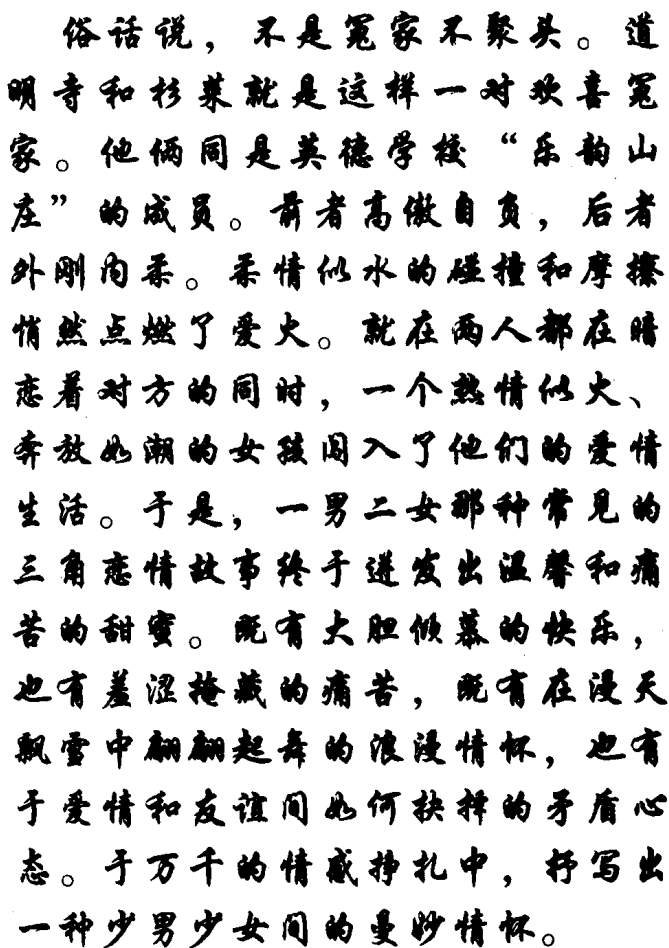 俗话说，不是冤家不聚头。道
明寺和杉菜就是这样一对欢喜冤
家。他俩同是英德学校“乐韵山
庄”的成员。前者高傲自负，后者
外刚内柔。柔情似水的碰撞和摩擦
悄然点燃了爱火。就在两人都在暗
恋着对方的同时，一个热情似火、
奔放如潮的女孩闯入了他们的爱情
生活。于是，一男二女那种常见的
三角恋情故事终于迸发出温馨和痛
苦的甜蜜。既有大胆倾慕的快乐，
也有羞涩掩藏的痛苦，既有在漫天
飘雪中翩翩起舞的浪漫情怀，也有
于爱情和友谊间如何抉择的矛盾心
态。于万千的情感挣扎中，抒写出
一种少男少女间的曼妙情怀。